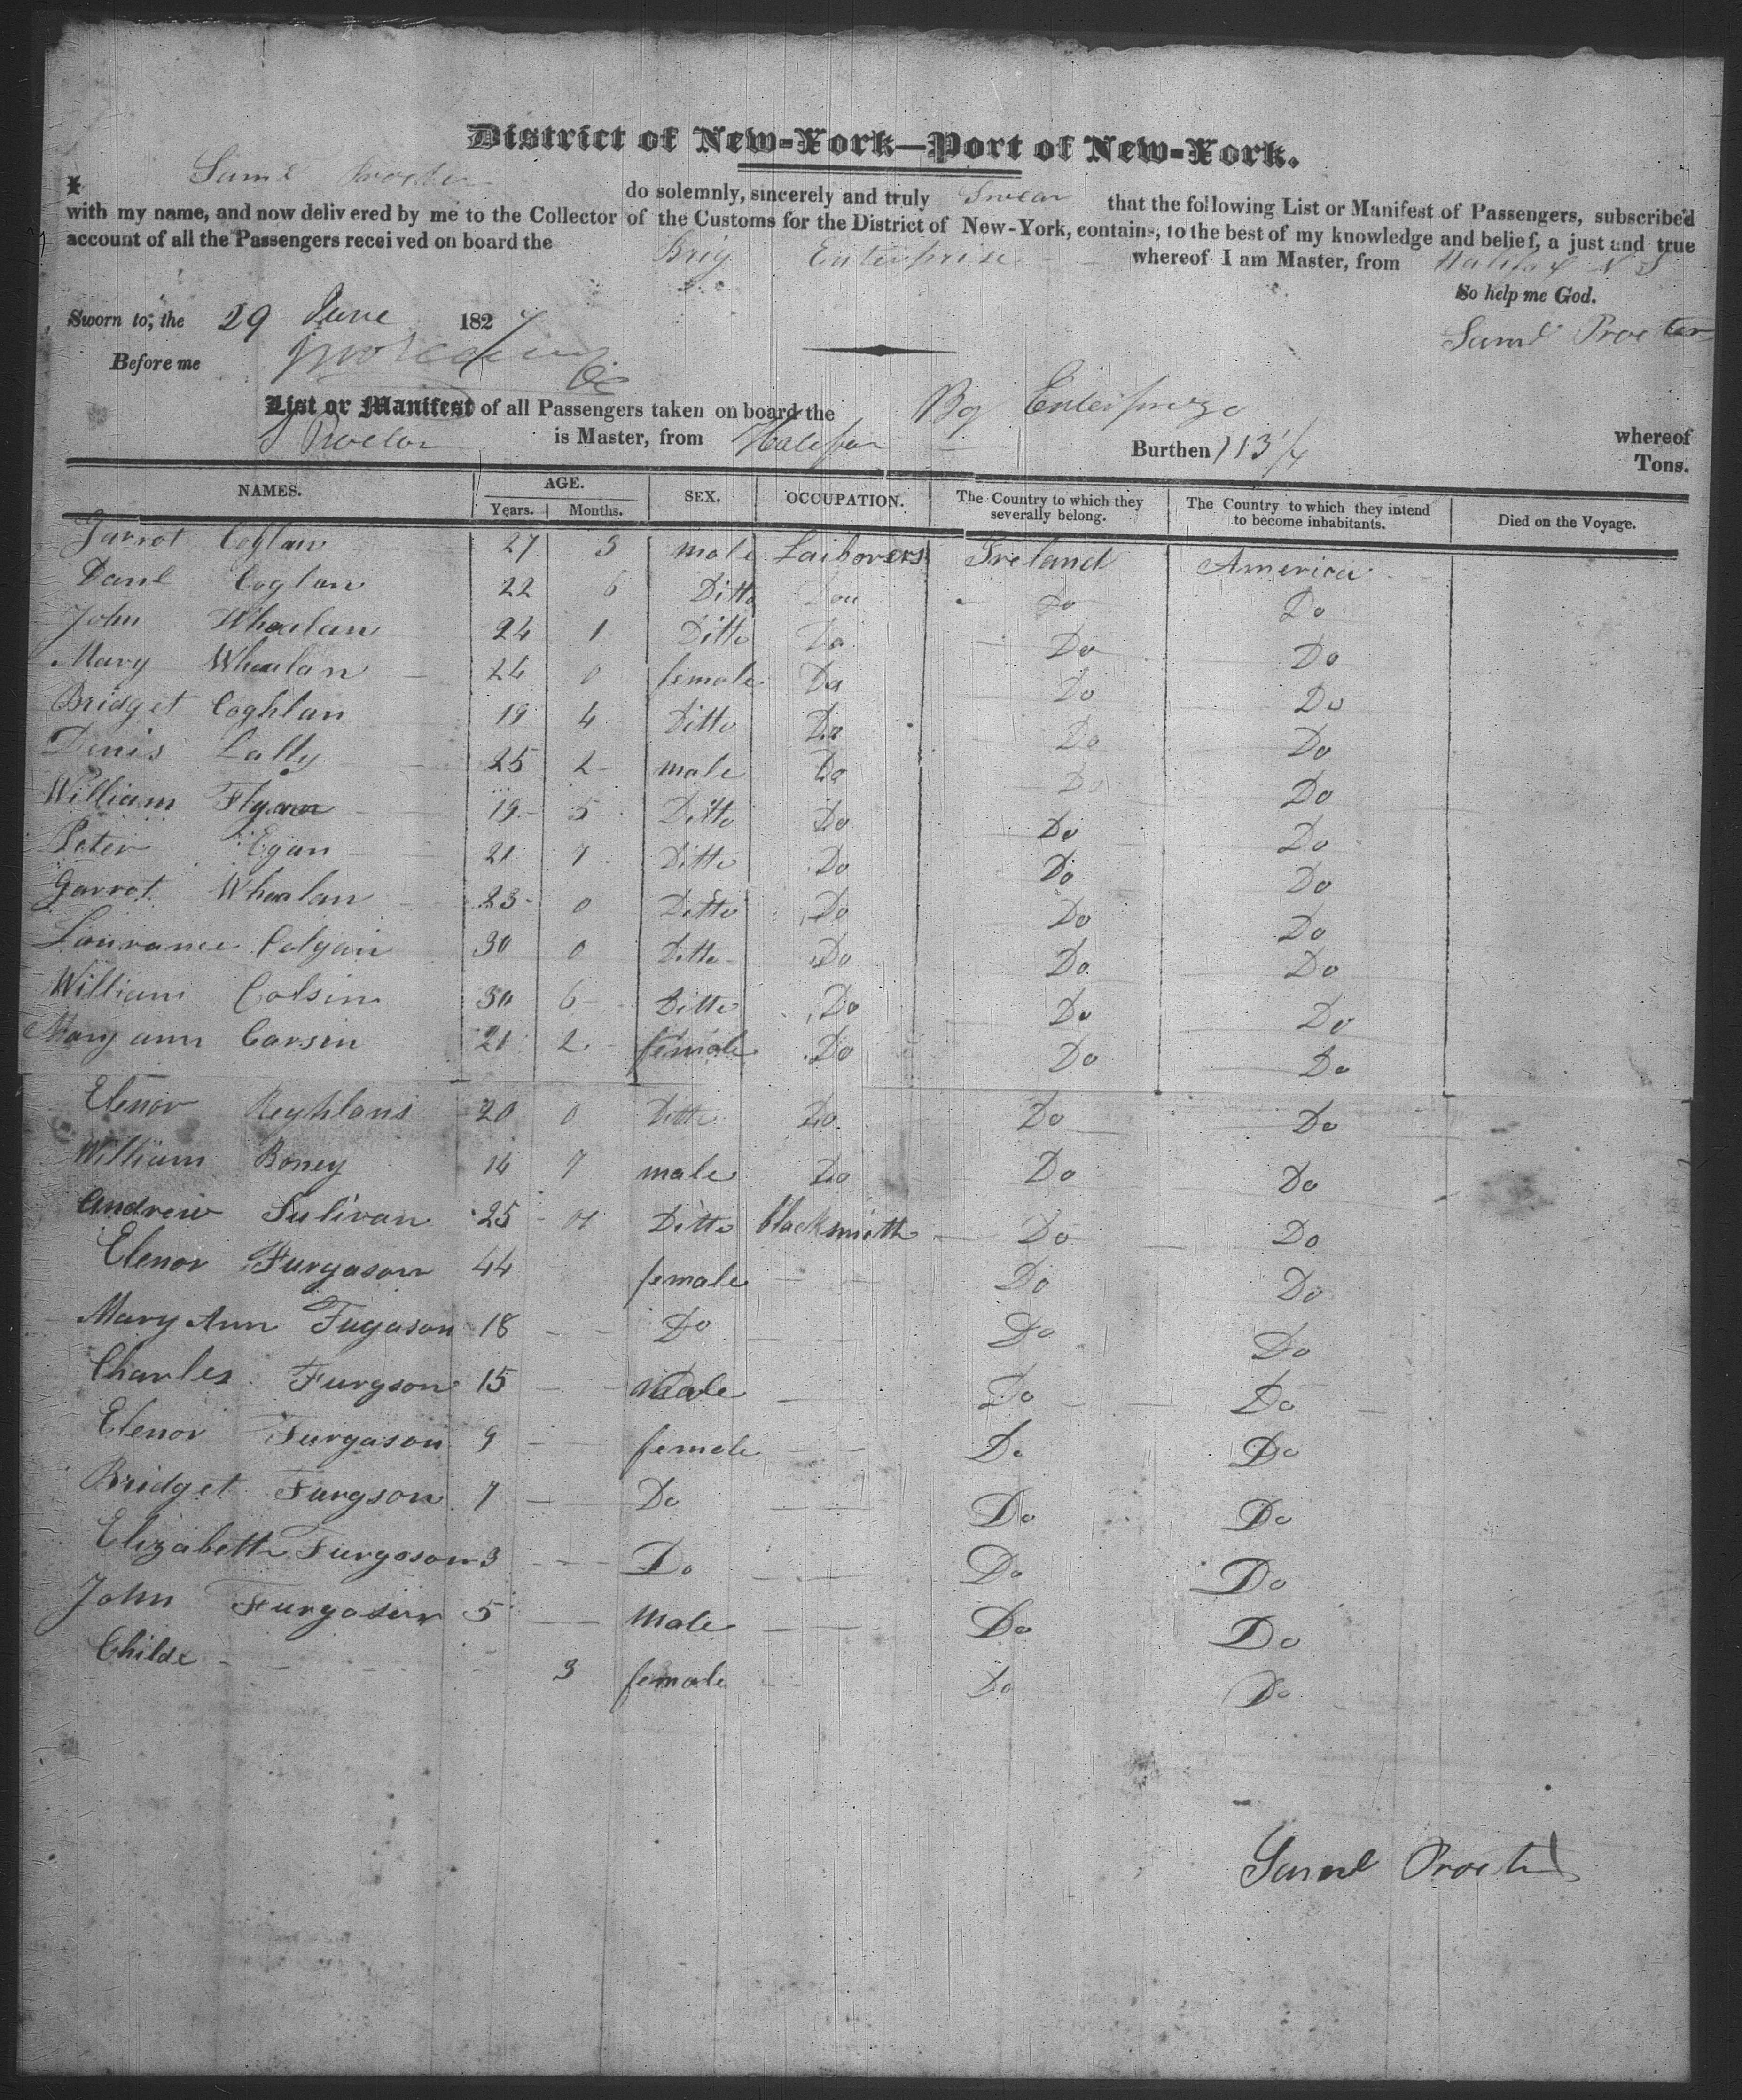 District of New-York—Port of New-York.
I, Saml Procter do solemnly, sincerely and truly Swear that the following List or Manifest of Passengers, subscribed
with my name, and now delivered by me to the Collector of the Customs for the District of New-York, contains, to the best of my knowledge and belief, a just and true
account of all the Passengers received on board the Brig Enterprise whereof I am Master, from Halifax N S
So help me God.
Sworn to, the 29 June 1827
Saml Procter
Before me
List or Manifest of all Passengers taken on board the Bg Enterprize whereof
S Procter is Master, from Halifax Burthen 113 1/4 Tons.
NAMES. AGE. Years. Months. SEX. OCCUPATION. The Country to which they severally belong. The Country to which they intend to become inhabitants. Died on the Voyage.
Garrot Coglan 27 3 male Laiborers Ireland America
Danl Coglan 22 6 Ditto Do Do
John Whealan 24 1 Ditto Do Do Do
Mary Whealan 24 0 female Do Do Do
Bridget Coghlan 19 4 Ditto Do Do Do
Denis Lally 25 2 male Do Do Do
William Flynn 19 5 Ditto Do Do Do
Peter Egan 21 7 Ditto Do Do Do
Garrot Whealan 23 0 Ditto Do Do Do
Laurance Colgan 30 0 Ditto Do Do Do
William Colsin 30 6 Ditto Do Do Do
Mary ann Carsin 21 2 female Do Do Do
Elenor 20 0 Ditto Do Do Do
William Boney 14 7 male Do Do Do
Andrew Sulivan 25 Ditto blacksmith Do Do
Elenor Furgason 44 female Do Do
Mary Ann Fugason 18 Do Do Do
Charles Furgson 15 Male Do Do
Elenor Furgason 9 female Do Do
Bridget Furgson 7 Do Do Do
Elizabeth Furgoson 3 Do Do Do
John Furgason 5 Male Do Do
Childe 3 female Do Do
Saml Procter